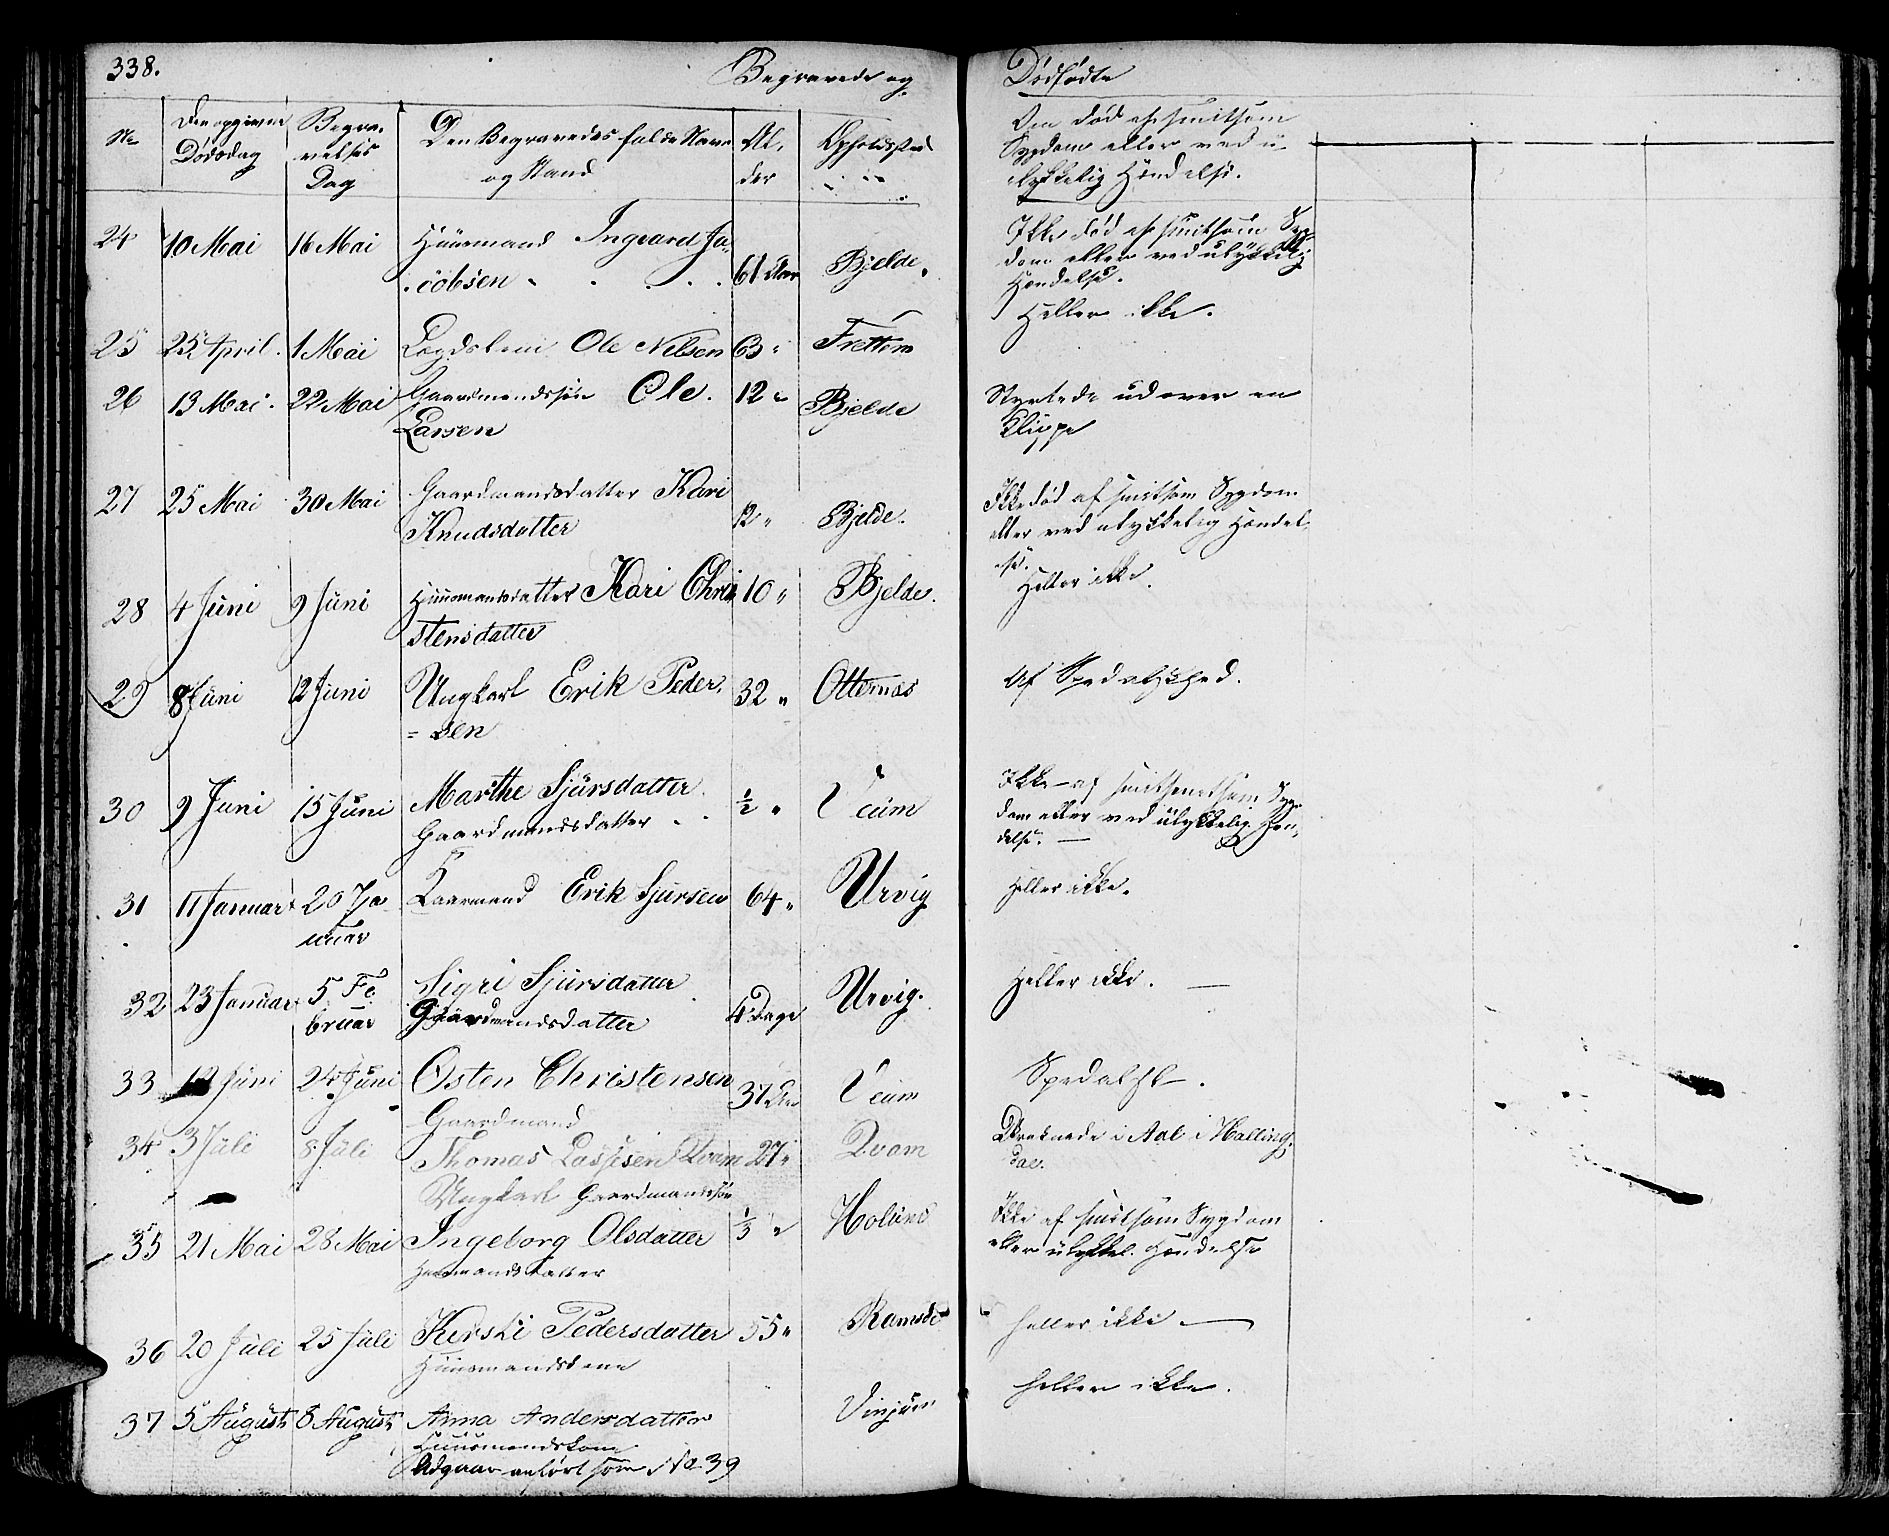 338.
Begravede og
Dødfødte
No
Den opgivne Dødsdag
Begravelses Dag
Den Begravedes fulde Navn og Stand
Alder
Opholdssted
Om død af smitsom
Sygdom eller ved u-
lykkelig Hændelse.
24 10 Mai 16 Mai Huusmand Ingvard Ja- 61 Aar Bjelde. Ikke død af smitsom Syg-
cobsen dom eller ved ulykkelig
Hændelse.
25 25 April. 1 Mai Ole Nelsen 63 " Frettem Heller ikke.
26 13 Mai. 22 Mai Gaardmandssøn Ole. 12 " Bjelde Styrtede ud over en
Larsen Klippe
27 25 Mai 30 Mai Gaardmandsdatter Kari 12 " Bjelde. Ikke død af smitsom Sygdom
Knudsdatter eller ved ulykkelig Hændel-
se.
28 4 Juni 9 Juni Huusmandsdatter Kari Chri 10 " Bjelde. Heller ikke.
stensdatter
29 8 Juni 12 Juni Ungkarl Erik Peder- 32 " Otternæs Af Spedalskhed.
= sen
30 9 Juni 15 Juni Marthe Sjursdatter. 1/2 " Veum Ikke af smitsom Syg-
Gaardmandsdatter dom eller ved ulykkelig Hæn-
delse. —
31 11 Januar 20 Ja- Erik Sjursen 64 " Urvig Heller ikke.
nuar
32 23 Januar 5 Fe- Sigri Sjursdatter 4 Dage Urvig. Heller ikke. —
bruar Gaardmandsdatter
33 12 Juni 24 Juni Osten Christensen 37 Aar Veum Spedalsk.
Gaardmand
34 3 Juli 8 Juli Thomas Lassesen Qvam 27 " Qvam Druknede i Aal i Halling-
Ungkarl Gaardmandssøn dal.
35 21 Mai 28 Mai Ingeborg Olsdatter 1/3 " Holund Ikke af smitsom Sygdom
Huusmandsdatter eller ulykkel. Hændelse
36 20 Juli 25 Juli Kirsti Pedersdatter 55 " Ramsde Heller ikke —
Huusmandskone
37 5 August 8 August Anna Andersdatter Vinjum Heller ikke.
Huusmandskone
Udgaar anført som No 39